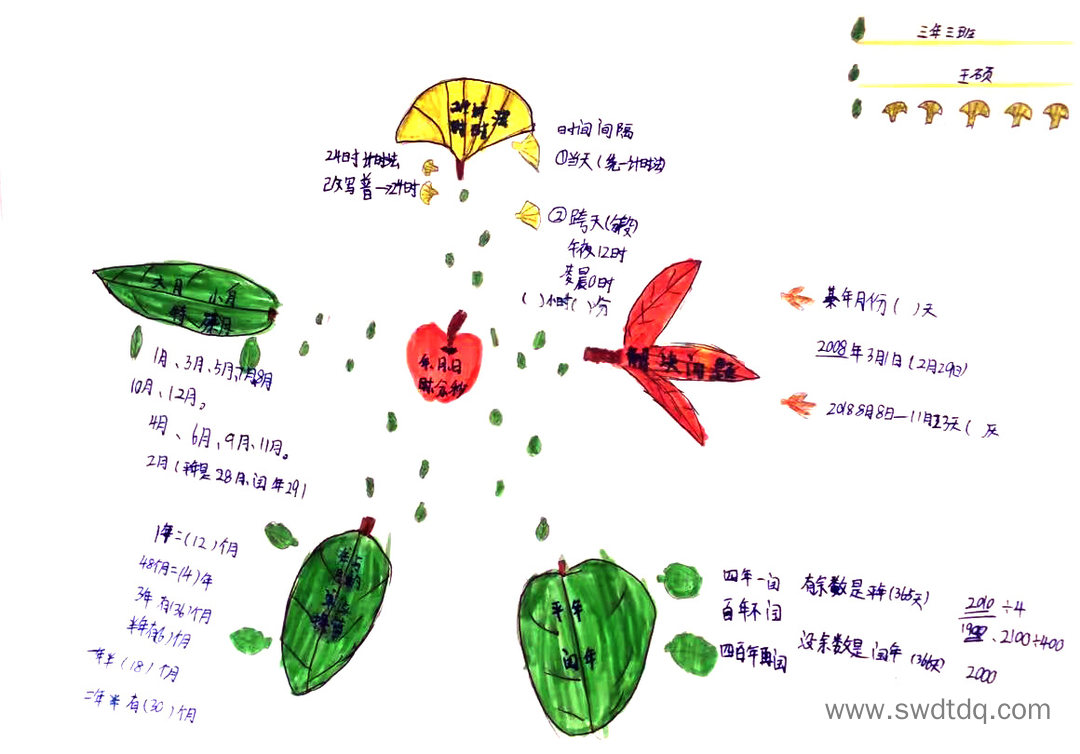 三年三班
王硕
24时计时法
时间间隔
①当天(统一计时法)
24时计时法
改写普→24时
②跨天(分段)
午夜12时
凌晨0时
( )小时( )份
大月 小月
特殊月
1月、3月、5月、7月、8月
10月、12月。
4月、6月、9月、11月。
2月(平年是28月、闰年29)
年、月、日
时分秒
解决问题
某年月份( )天
2008年3月1日(2月29日)
2018 8月8日—11月23天( 天
1年=(12)个月
48个月=(4)年
3年有(36)个月
半年有(6)个月
一年半(18)个月
二年半有(30)个月
年与
平年
闰年
四年一闰
百年不闰
四百年再闰
有余数是平年(365天)
没余数是闰年(366天)
2010÷4
1900、2100÷400
2000
www.swdtdq.com